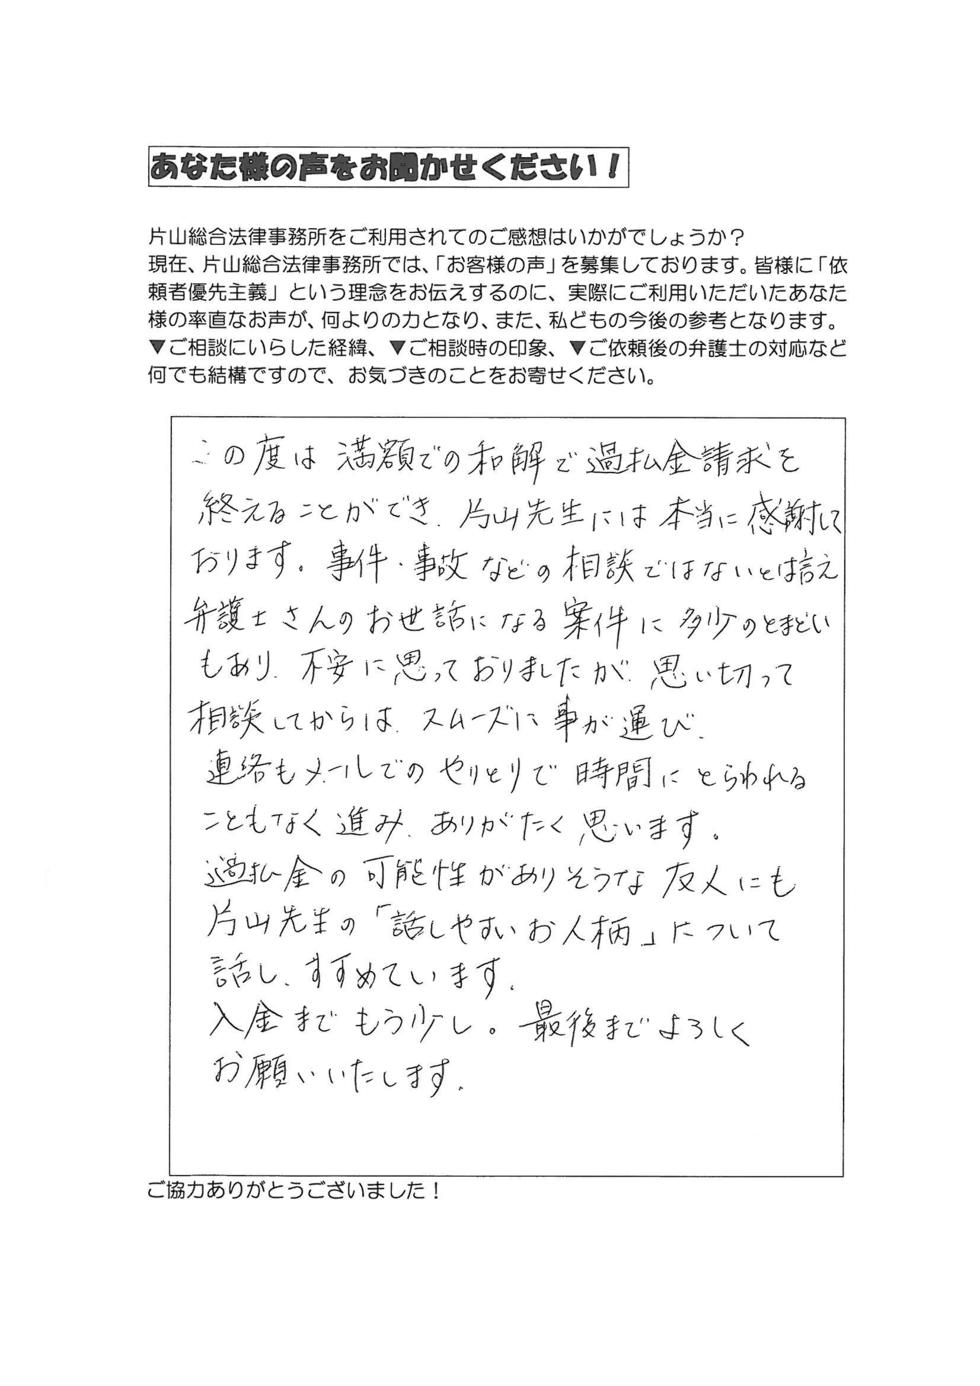 あなた様の声をお聞かせください！
片山総合法律事務所をご利用されてのご感想はいかがでしょうか？
現在、片山総合法律事務所では、「お客様の声」を募集しております。皆様に「依
頼者優先主義」という理念をお伝えするのに、実際にご利用いただいたあなた
様の率直なお声が、何よりの力となり、また、私どもの今後の参考となります。
▼ご相談にいらした経緯、▼ご相談時の印象、▼ご依頼後の弁護士の対応など
何でも結構ですので、お気づきのことをお寄せください。
この度は満額での和解で過払金請求を
終えることができ、片山先生には本当に感謝して
おります。事件・事故などの相談ではないとは言え
弁護士さんのお世話になる案件に多少のとまどい
もあり、不安に思っておりましたが、思い切って
相談してからは、スムーズに事が運び、
連絡もメールでのやりとりで時間にとらわれる
こともなく進み、ありがたく思います。
過払金の可能性がありそうな友人にも
片山先生の「話しやすいお人柄」について
話し、すすめています。
入金までもう少し。最後までよろしく
お願いいたします。
ご協力ありがとうございました！